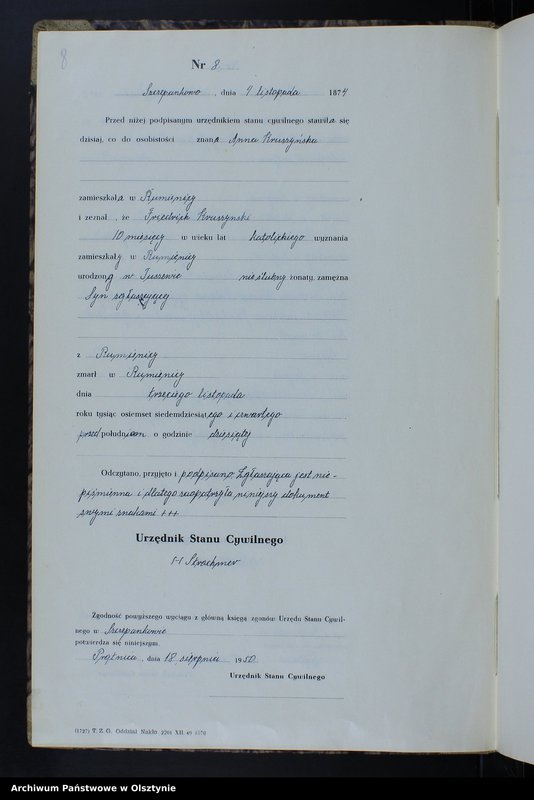 8
Nr 8.
Szczepankowo, dnia 4 listopada 1874
Przed niżej podpisanym urzędnikiem stanu cywilnego stawiła się
dzisiaj, co do osobistości znana Anna Kruszyńska
zamieszkała w Rumienicy
i zeznał, że Friedrich Kruszynski
10 miesięcy w wieku lat katolickiego wyznania
zamieszkały w Rumienicy
urodzony w Tuszewie nieślubny żonaty, zamężna
Syn zgłaszającej
z Rumienicy
zmarł w Rumienicy
dnia trzeciego listopada
roku tysiąc osiemset siedemdziesiątego i czwartego
przed południem o godzinie dziesiątej
Odczytano, przyjęto i podpisano Zgłaszająca jest nie-
piśmienna i dlatego zaopatrzyła niniejszy dokument
swymi znakami +++
Urzędnik Stanu Cywilnego
Zgodność powyższego wyciągu z główną księgą zgonów Urzędu Stanu Cywil-
nego w Szczepankowie
potwierdza się niniejszym.
Prątnica, dnia 18 sierpnia 1950
Urzędnik Stanu Cywilnego
(1727) T. Z. G. Oddział Nakło 2201 XII 49
Archiwum Państwowe w Olsztynie